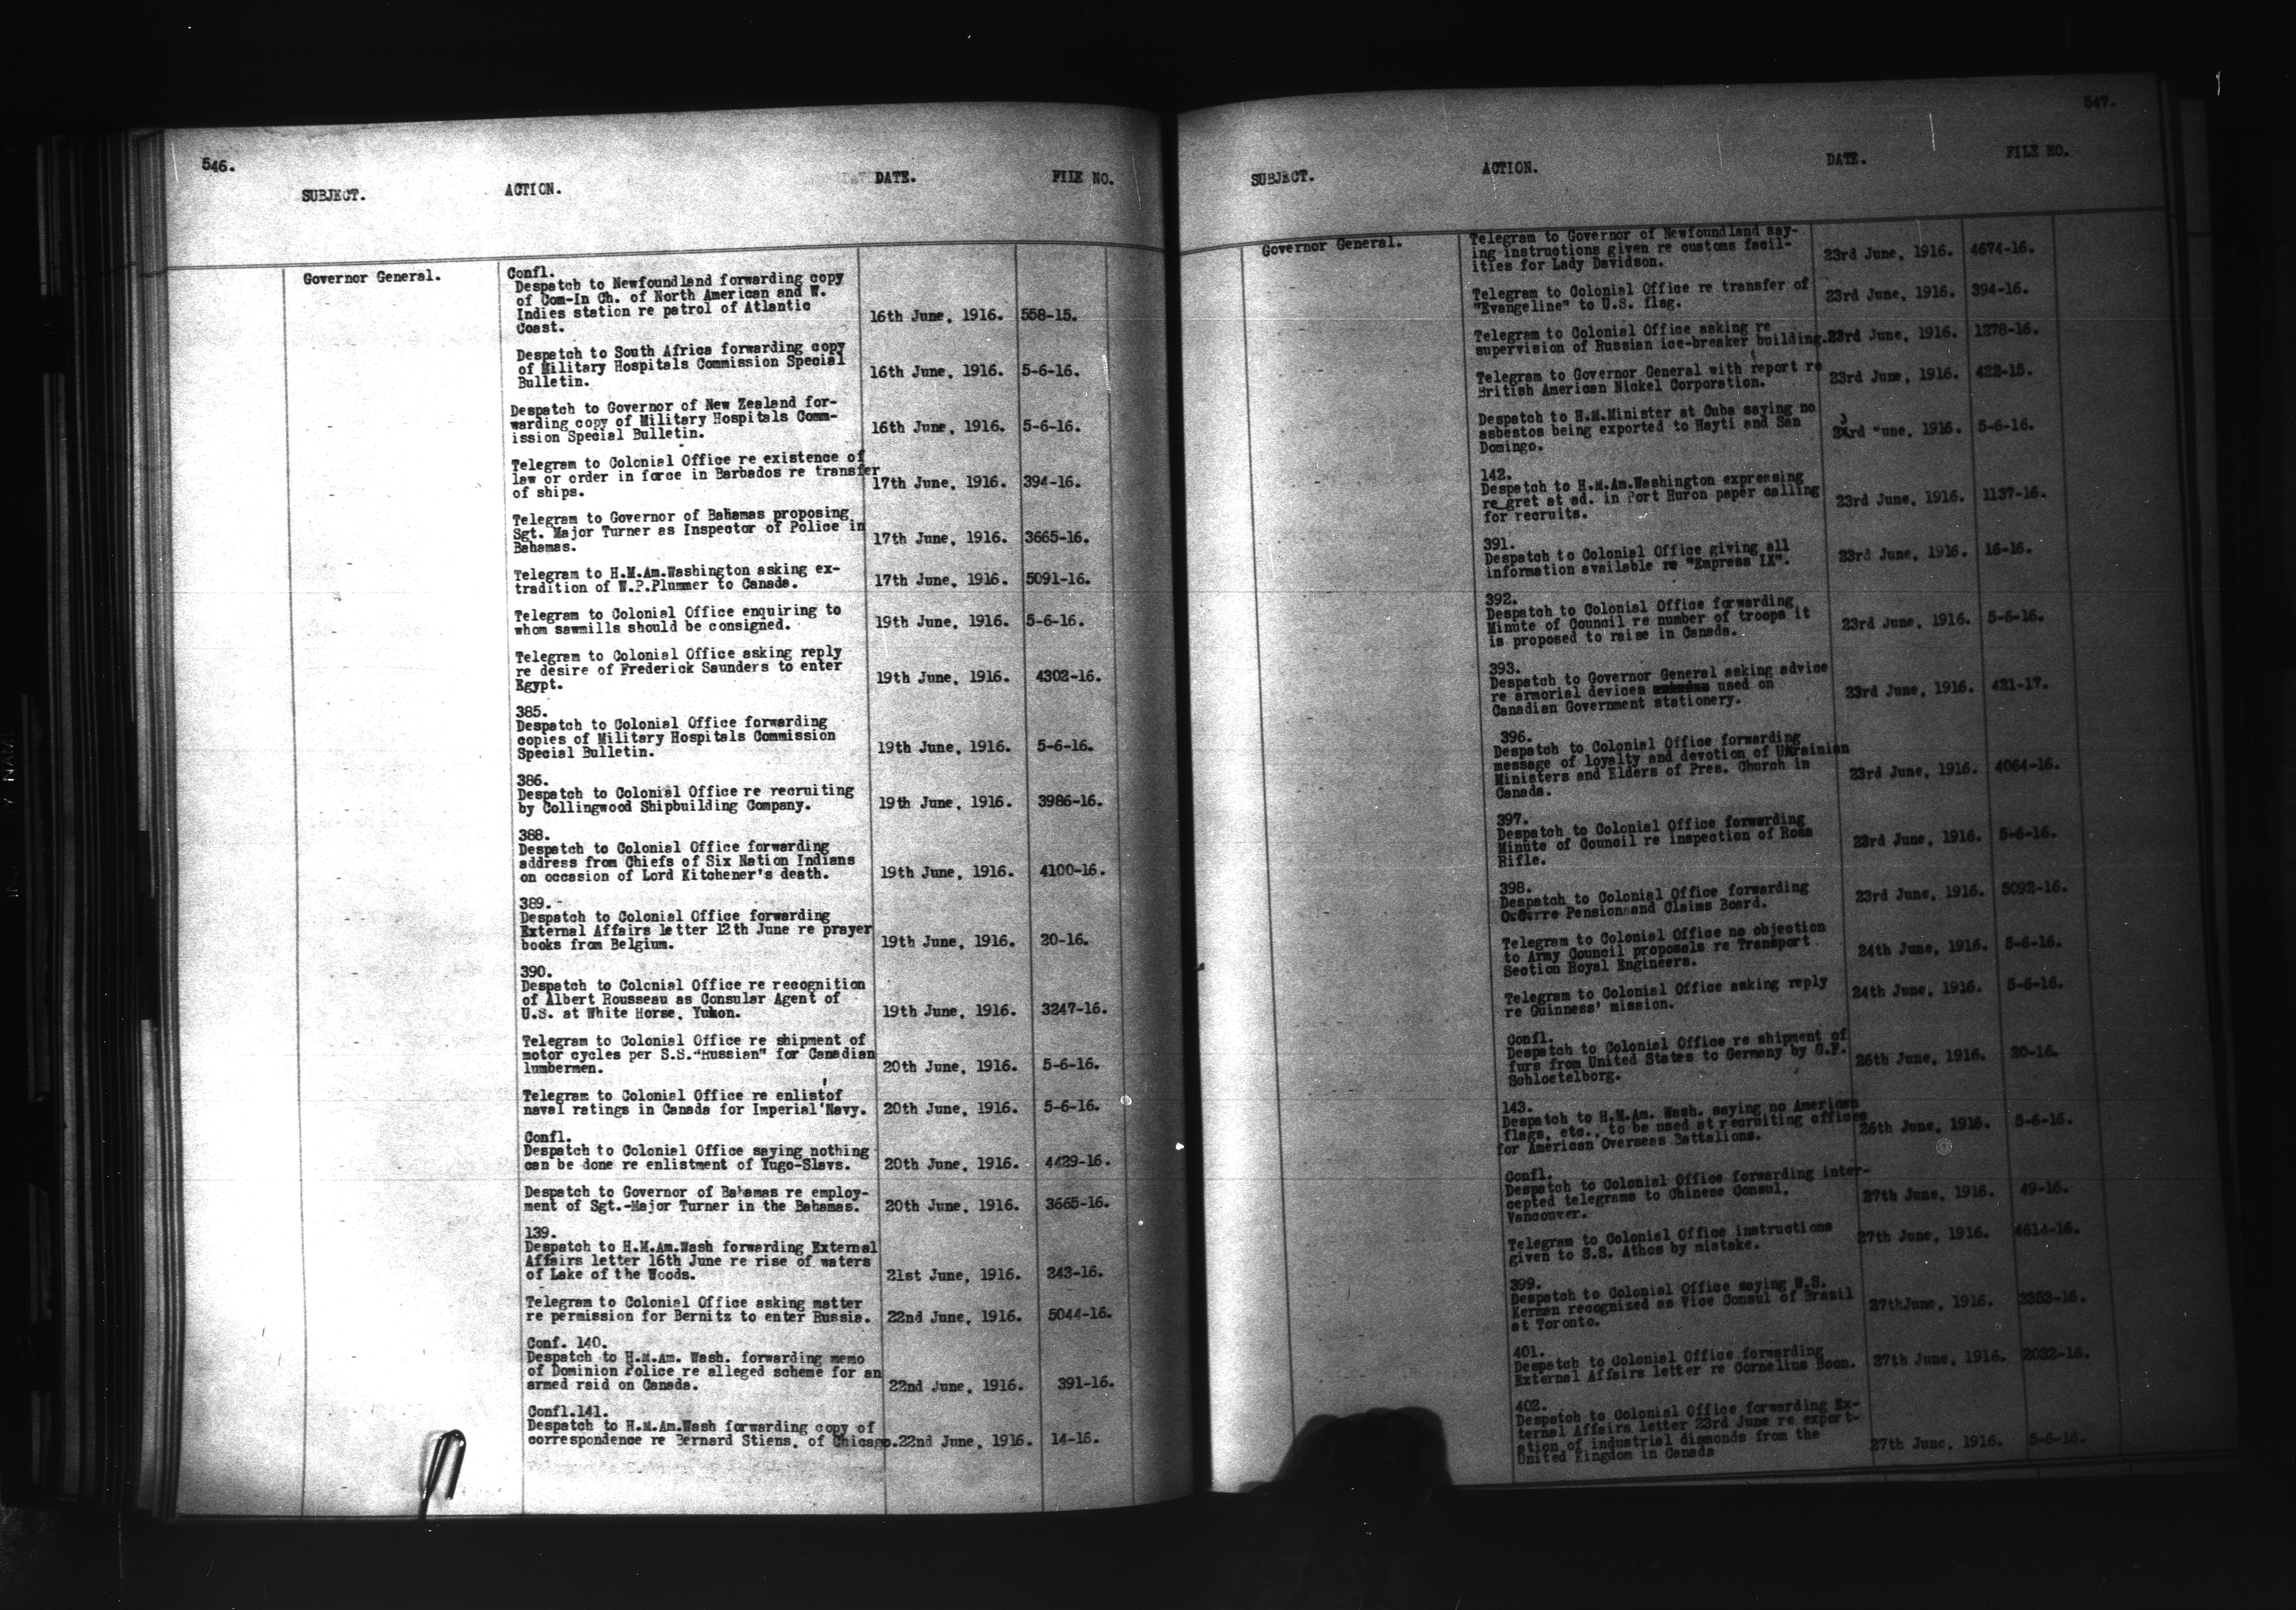 546.
SUBJECT. ACTION. DATE. FILE NO.
Governor General.
Confl.
Despatch to Newfoundland forwarding copy
of Com-In Ch. of North American and W.
Indies station re patrol of Atlantic
Coast. 16th June, 1916. 558-15.
Despatch to South Africa forwarding copy
of Military Hospitals Commission Special
Bulletin. 16th June, 1916. 5-6-16.
Despatch to Governor of New Zealand for-
warding copy of Military Hospitals Comm-
ission Special Bulletin. 16th June, 1916. 5-6-16.
Telegram to Colonial Office re existence of
law or order in force in Barbados re transfer
of ships. 17th June, 1916. 394-16.
Telegram to Governor of Bahamas proposing
Sgt. Major Turner as Inspector of Police in
Bahamas. 17th June, 1916. 3665-16.
Telegram to H.M.Am.Washington asking ex-
tradition of W.P.Plummer to Canada. 17th June, 1916. 5091-16.
Telegram to Colonial Office enquiring to
whom sawmills should be consigned. 19th June, 1916. 5-6-16.
Telegram to Colonial Office asking reply
re desire of Frederick Saunders to enter
Egypt. 19th June, 1916. 4302-16.
385.
Despatch to Colonial Office forwarding
copies of Military Hospitals Commission
Special Bulletin. 19th June, 1916. 5-6-16.
386.
Despatch to Colonial Office re recruiting
by Collingwood Shipbuilding Company. 19th June, 1916. 3986-16.
388.
Despatch to Colonial Office forwarding
address from Chiefs of Six Nation Indians
on occasion of Lord Kitchener's death. 19th June, 1916. 4100-16.
389.-
Despatch to Colonial Office forwarding
External Affairs letter 12th June re prayer
books from Belgium. 19th June, 1916. 20-16.
390.
Despatch to Colonial Office re recognition
of Albert Rousseau as Consular Agent of
U.S. at White Horse, Yukon. 19th June, 1916. 3247-16.
Telegram to Colonial Office re shipment of
motor cycles per S.S."Russian" for Canadian
lumbermen. 20th June, 1916. 5-6-16.
Telegram to Colonial Office re enlist'of
naval ratings in Canada for Imperial Navy. 20th June, 1916. 5-6-16.
Confl.
Despatch to Colonial Office saying nothing
can be done re enlistment of Yugo-Slavs. 20th June, 1916. 4429-16.
Despatch to Governor of Bahamas re employ-
ment of Sgt.-Major Turner in the Bahamas. 20th June, 1916. 3665-16.
139.
Despatch to H.M.Am.Wash forwarding External
Affairs letter 16th June re rise of waters
of Lake of the Woods. 21st June, 1916. 243-16.
Telegram to Colonial Office asking matter
re permission for Bernitz to enter Russia. 22nd June, 1916. 5044-16.
Conf. 140.
Despatch to H.M.Am. Wash. forwarding memo
of Dominion Police re alleged scheme for an
armed raid on Canada. 22nd June, 1916. 391-16.
Confl.141.
Despatch to H.M.Am.Wash forwarding copy of
correspondence re Bernard Stiens, of Chicago. 22nd June, 1916. 14-16.
547.
SUBJECT. ACTION. DATE. FILE NO.
Governor General.
Telegram to Governor of Newfoundland say-
ing instructions given re customs facil-
ities for Lady Davidson. 23rd June, 1916. 4674-16.
Telegram to Colonial Office re transfer of
"Evangeline" to U.S. flag. 23rd June, 1916. 394-16.
Telegram to Colonial Office asking re
supervision of Russian ice-breaker building. 23rd June, 1916. 1278-16.
Telegram to Governor General with report re
British American Nickel Corporation. 23rd June, 1916. 422-15.
Despatch to H.M.Minister at Cuba saying no
asbestos being exported to Hayti and San
Domingo. 23rd "une, 1916. 5-6-16.
142.
Despatch to H.M.Am.Washington expressing
re gret at ad. in Port Huron paper calling
for recruits. 23rd June, 1916. 1137-16.
391.
Despatch to Colonial Office giving all
information available re "Empress IX". 23rd June, 1916. 16-16.
392.
Despatch to Colonial Office forwarding
Minute of Council re number of troops it
is proposed to raise in Canada. 23rd June, 1916. 5-6-16.
393.
Despatch to Governor General asking advice
re armorial devices used on
Canadian Government stationery. 23rd June, 1916. 421-17.
396.
Despatch to Colonial Office forwarding
message of loyalty and devotion of Ukrainian
Ministers and Elders of Pres. Church in
Canada. 23rd June, 1916. 4064-16.
397.
Despatch to Colonial Office forwarding
Minute of Council re inspection of Ross
Rifle. 23rd June, 1916. 5-6-16.
398.
Despatch to Colonial Office forwarding
Pension and Claims Board. 23rd June, 1916. 5092-16.
Telegram to Colonial Office no objection
to Army Council proposals re Transport
Section Royal Engineers. 24th June, 1916. 5-6-16.
Telegram to Colonial Office asking reply
re Guinness' mission. 24th June, 1916. 5-6-16.
Confl.
Despatch to Colonial Office re shipment of
furs from United States to Germany by G.F.
Schloetelborg. 26th June, 1916. 20-16.
143.
Despatch to H.M.Am. Wash. saying no American
flags, etc., to be used at recruiting offices
for American Overseas Battalions. 26th June, 1916. 5-6-16.
Confl.
Despatch to Colonial Office forwarding inter-
cepted telegrams to Chinese Consul,
Vancouver. 27th June, 1916. 49-16.
Telegram to Colonial Office instructions
given to S.S. Athos by mistake. 27th June, 1916. 4614-16.
399.
Despatch to Colonial Office saying W.S.
Kerman recognized as Vice Consul of Brazil
at Toronto. 27thJune, 1916. 3353-16.
401.
Despatch to Colonial Office forwarding
External Affairs letter re Cornelius Boon. 27th June, 1916. 2032-16.
402.
Despatch to Colonial Office forwarding Ex-
ternal Affairs letter 23rd June re export-
ation of industrial diamonds from the
United Kingdom in Canada 27th June, 1916. 5-6-16.